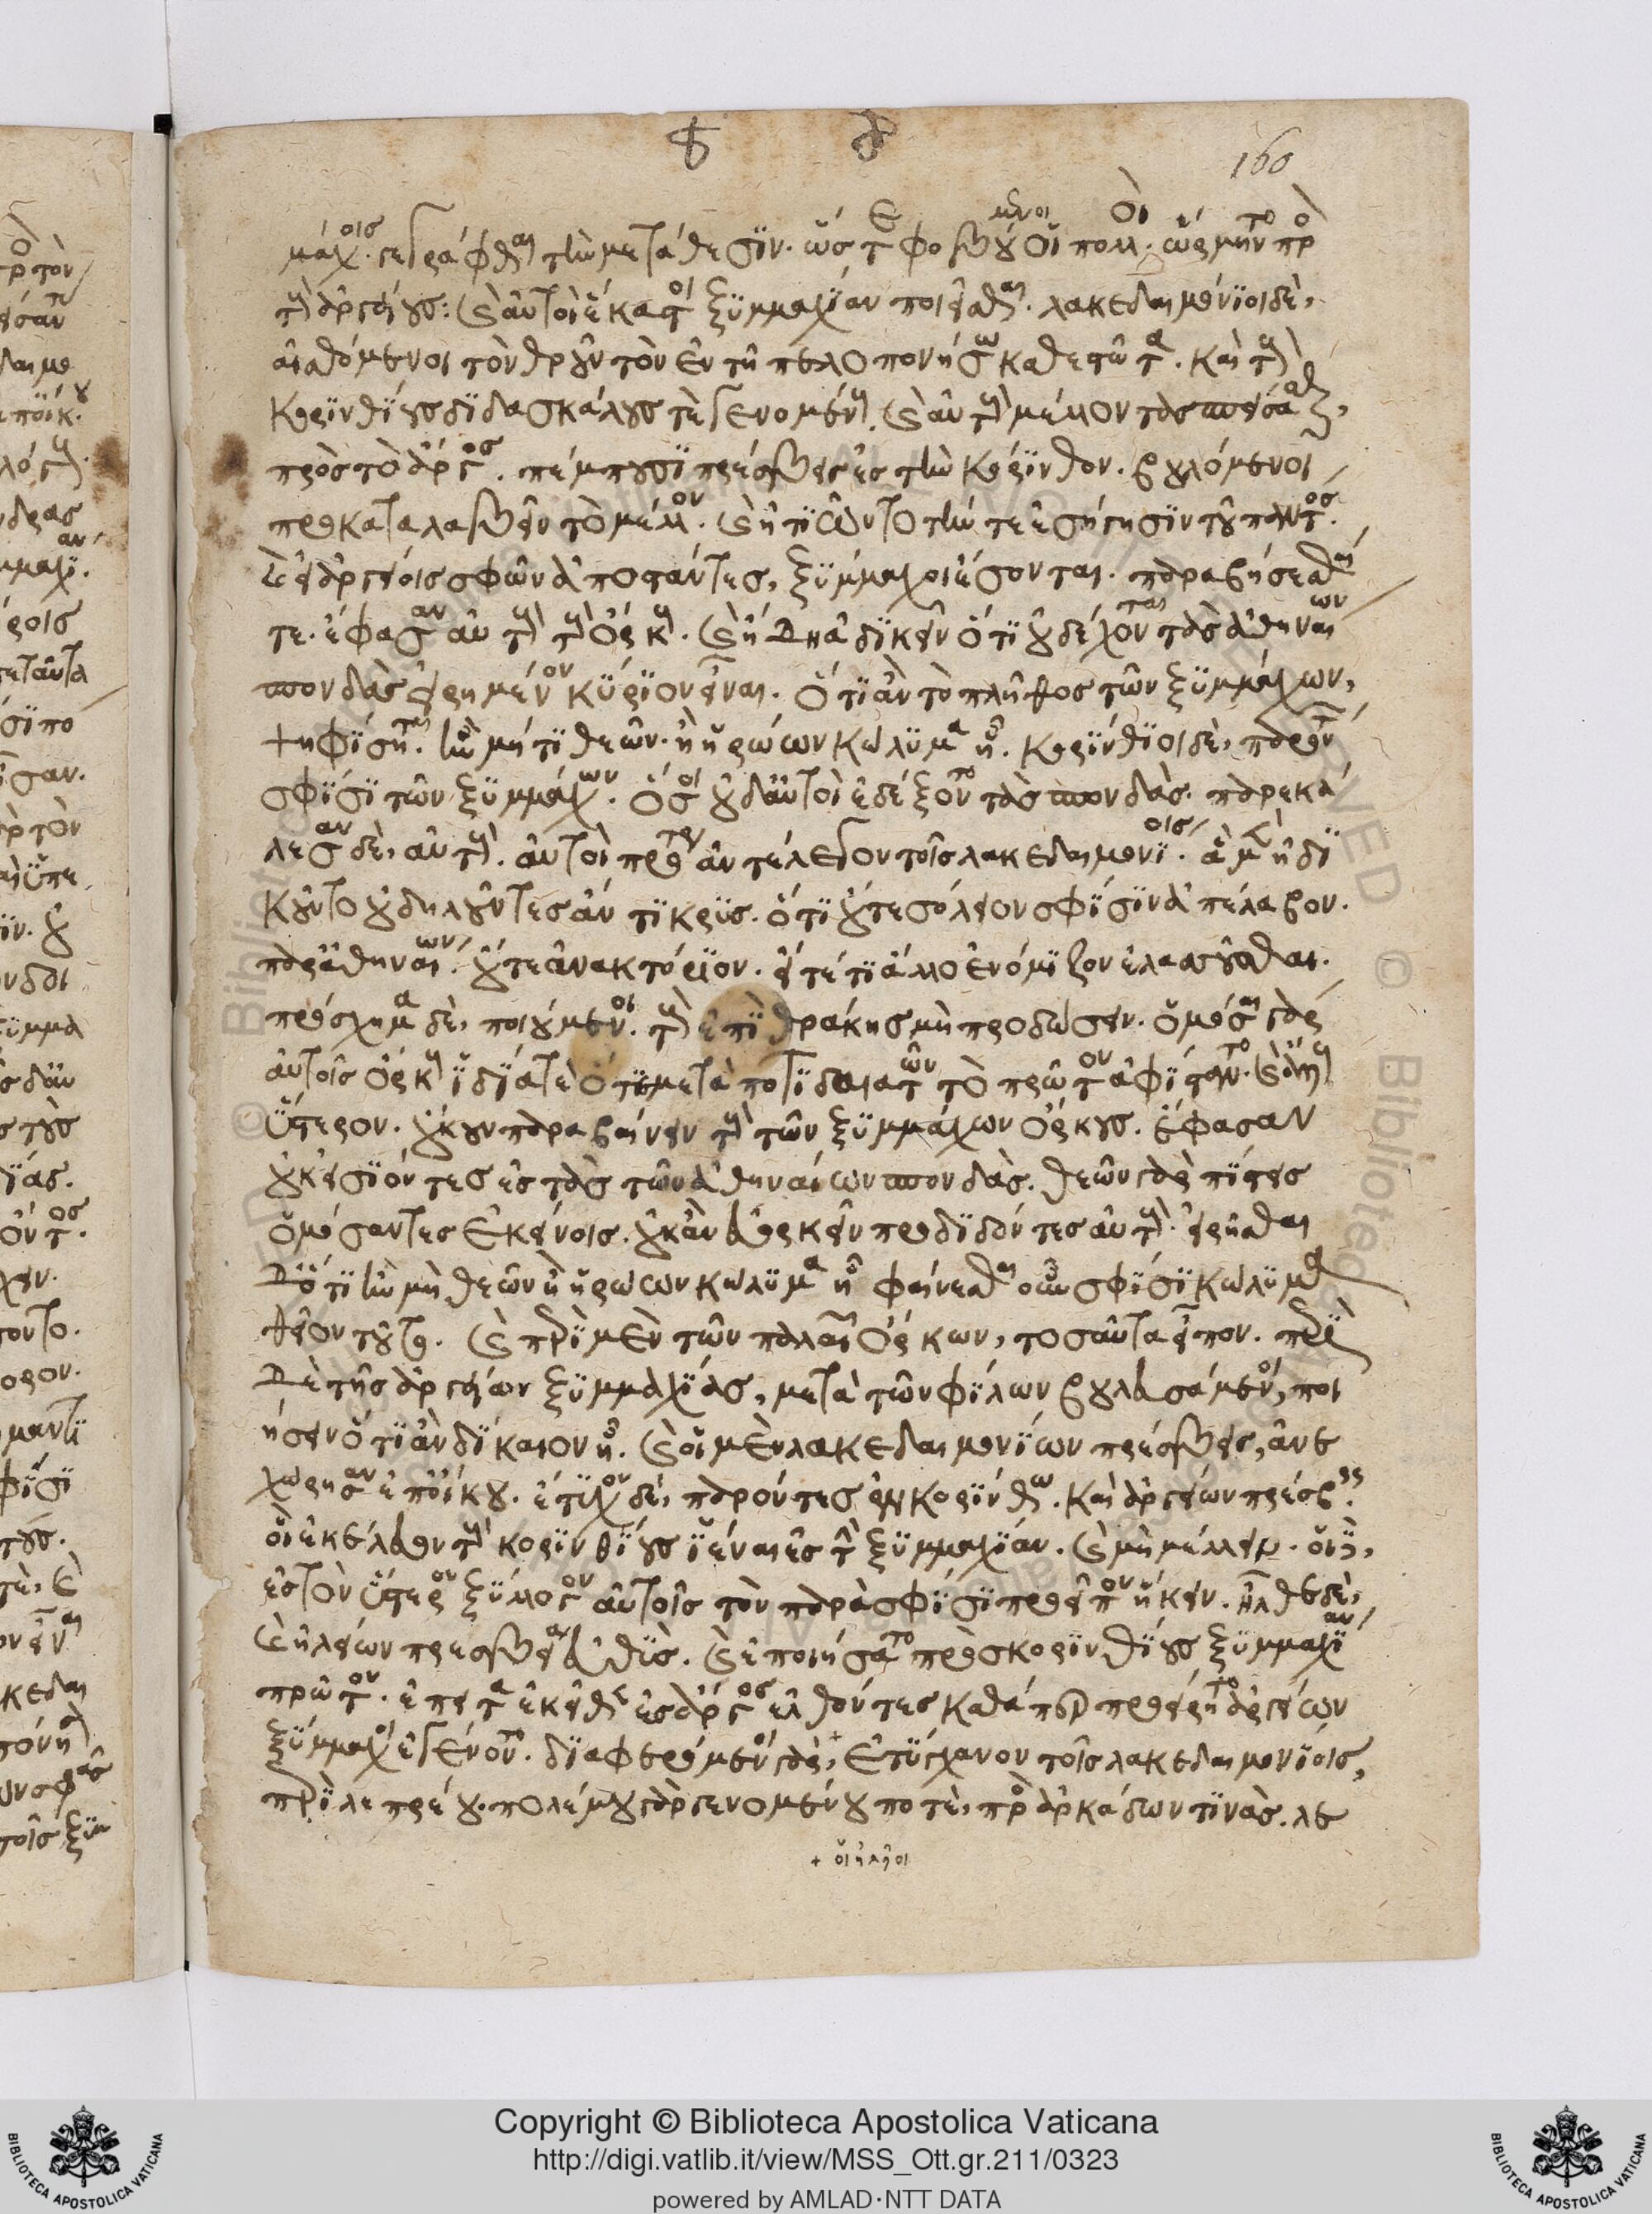 μάχοις γεγράφθαι τὴν μετάθεσιν. ὥστε φοβούμενοι οἱ πολλοὶ. ὥρμηντο πρὸς
τοὺς ἀργείους· καὶ αὐτοὶ ἕκαστοι ξϋμμαχίαν ποιεῖσθαι. λακεδαιμόνϊοι δὲ,
αἰσθόμενοι τὸν θροῦν τὸν ἐν τῆ πελοπονήσω καθεστῶτα. καὶ τοὺς
κορϊνθϊους δϊδασκάλους τὲ γενομένους. καὶ αὐτοὺς μέλλοντας σπείσασθαι,
πρὸς τὸ ἄργος. πέμπουσϊ πρέσβεις ἐς τὴν κόρϊνθον. βουλόμενοι
προκαταλαβεῖν τὸ μέλλον. καὶ ἠτϊῶντο τήν τε ἐσήγησϊν τοῦ παντός.
καὶ εἰ ἀργείοις σφῶν ἀποστάντες, ξϋμμαχοι ἔσονται. παραβήσεσθαί
τε. ἔφασαν αὐτοὺς τοὺς ὅρκους. καὶ ἤδη ἀδϊκεῖν ὅτϊ οὐ δέχονται τὰς ἀθηναίων
σπονδὰς εἰρημένον κύρϊον εἶναι. ὅτϊ ἂν τὸ πλῆθος τῶν ξϋμμάχων,
ψηφϊσηται. ἢν μή τϊ θεῶν. ἢ ἡρώων κωλϋμα ἦ. κορϊνθϊοι δὲ, παρόντων
σφϊσϊ τῶν ξϋμμάχων. ὅσοι οὐδ᾽ αὐτοὶ ἐδέξοντο τὰς σπονδὰς. παρεκά
λεσαν δὲ, αὐτοὺς. αὐτοὶ πρότερον ἀντέλεγον τοῖς λακεδαιμονϊοις. ἃ μὲν ἠδϊ
κοῦντο οὐ δηλοῦντες ἄντϊκρϋς. ὅτϊ οὔτε σόλειον σφϊσϊν ἀπέλαβον.
παρ᾽ ἀθηναίων. οὔτε ἀνακτόρϊον. εἴτέ τϊ ἄλλο ἐνόμϊζον ἐλασσοῦσθαι.
πρόσχημα δὲ, ποιούμενοι. τοὺς ἐπὶ θρᾴκης μὴ προδώσειν. ὀμόσαι γὰρ
αὐτοῖς ὅρκους ἰδίᾳ τὲ ὅτε μετὰ ποτϊδαιατῶν τὸ πρῶτον ἀφίσταντο. καὶ ἄλλους
ὕστερον. οὔκουν παραβαίνειν τοὺς τῶν ξϋμμάχων ὅρκους. ἔφασαν
οὐκ εἰσϊόντες ἐς τὰς τῶν ἀθηναίων σπονδὰς. θεῶν γὰρ πϊστεις
ὀμόσαντες ἐκείνοις. οὐκ ἂν εὐορκεῖν προδϊδόντες αὐτοὺς. εἰρῆσθαι
δ᾽ ὅτϊ ἢν μὴ θεῶν ἢ ἡρώων κωλϋμα ἦ φαίνεσθαι οὖν σφϊσϊ κωλϋμα
θεῖον τοῦτο. καὶ περὶ μὲν τῶν παλαιῶν ὅρκων, τοσαῦτα εἶπον. περὶ
δὲ τῆς ἀργείων ξϋμμαχϊας, μετὰ τῶν φϊλων βουλευσάμενοι, ποι
ήσειν ὅτϊ ἂν δϊκαιον ἦ. καὶ οἱ μὲν λακεδαιμονϊων πρέσβεις, ἀνε
χώρησαν ἐπ᾽ οἴκου. ἔτϋχον δὲ, παρόντες ἐν κορϊνθω. καὶ ἀργείων πρέσβεις.
οἳ ἐκέλευον τοὺς κορϊνθϊους ἰέναι ἐς τὴν ξϋμμαχϊαν. καὶ μὴ μέλλειν. οἱ δὲ,
ἐς τὸν ὕστερον ξϋλλογον αὐτοῖς τὸν παρὰ σφϊσϊ προεῖπον ἥκειν. ἦλθε δὲ,
καὶ ἠλείων πρεσβεία εὐθϋς. καὶ ἐποιήσαντο πρὸς κορϊνθϊους ξϋμμαχϊαν
πρῶτον. ἔπειτα ἐκεῖθεν ἐς ἄργος ἐλθόντες καθάπερ προείρητο ἀργείων
ξϋμμαχοι ἐγένοντο. δϊαφερόμενοι γὰρ, + ἐτϋγχανον τοῖς λακεδαιμονϊοις,
περὶ λεπρέου. πολέμου γὰρ γενομένου ποτὲ, πρὸς ἀρκάδων τϊνὰς. λε
+ οἱ ἠλεῖοι
Copyright © Biblioteca Apostolica Vaticana
http://digi.vatlib.it/view/MSS_Ott.gr.211/0323
powered by AMLAD·NTT DATA